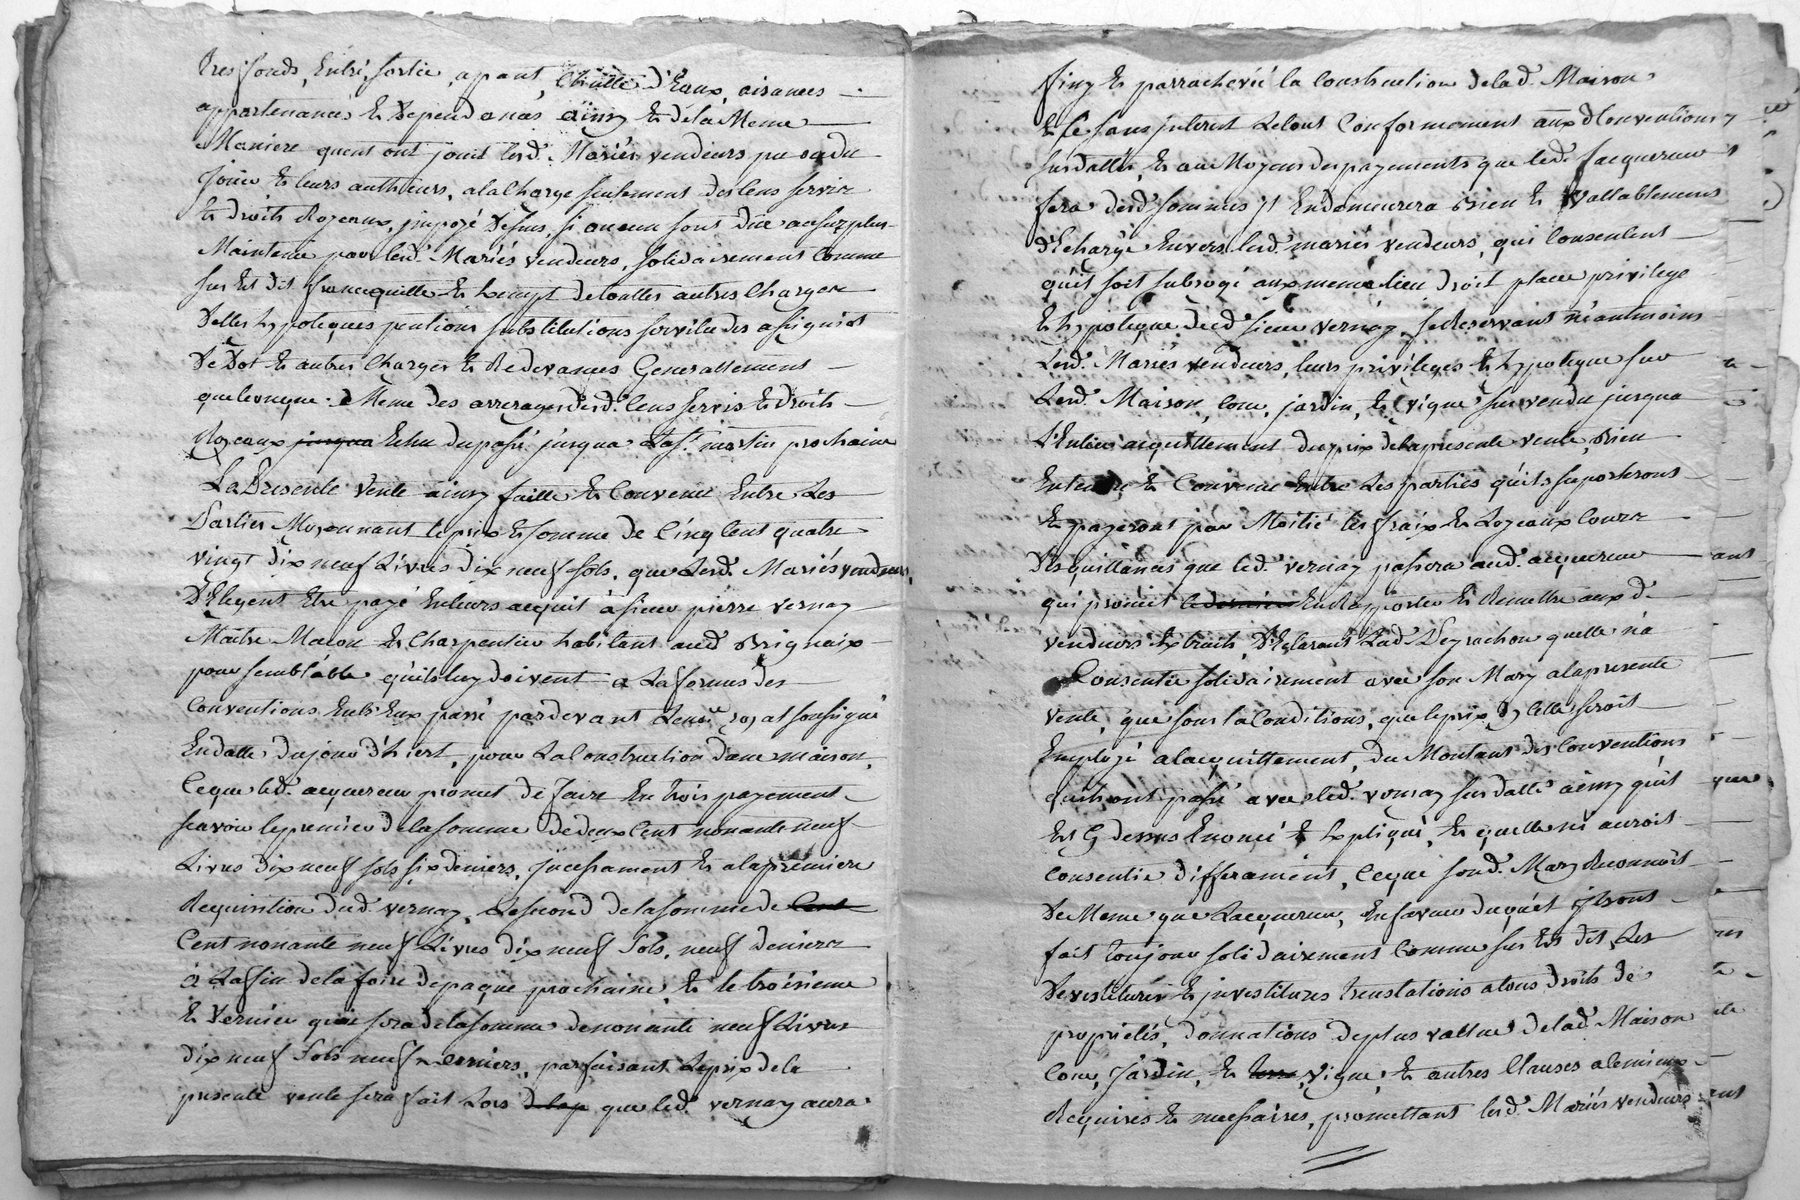 tresfonds, Entré, sortie, apant, Chutte d'Eaux, aisances
appartenances Et Dependances ainsy Et dela Meme
Maniere quent ont jouit lesd. Mariés vendeurs pu ou du
Jouir Et leurs autheurs, ala Charge seulement des Cens servix
Et droits Royeaux, jmposé Dessus, si aucun sont due au surplus
Maintenue par lesd. Mariés vendeurs, solidairement Comme
sus Est dit franc quitte Et Exempt de touttes autres Charges
Dettes hypoteques pentions substitutions servitudes assignat
De Dot Et autres Charges Et Redevances Generallement
quelconque. Meme des arrerages desd. Cens servis Et Droits
Royeaux jusqua Echu du passé jusqua La St. martin prochaine
La Presente Vente ainsy faitte Et Convenue Entre Les
Parties Moyennant le prix Et somme de Cinq Cent quatre
vingt dix neuf Livres dix neuf sols, que Lesd. Mariés vendeurs
D'Elegent Etre payé En leurs acquit à sieur pierre vernay
Maitre Macon Et Charpentier habitant aud. Brignaix
pour semblable qu'ils luy doivent a La formes des
Conventions Entr'Eux passé pardevant Le no.re royal soussigné
En datte du jour d'hiert, pour La Construction d'une maison,
Ceque led. acquereur promet de faire En trois payement
scavoir le premier de la somme De deux Cent nonante neuf
Livres dix neuf sols six deniers, jncessament Et ala premiere
Requisition dud. vernay, Le second de la somme de Cent
Cent nonante neuf Livres dix neuf sols, neuf deniers
a La fin de la foire de paque prochaine, Et le troisieme
Et Dernier qui sera de la somme de nonante neuf Livres
dix neuf sols neuf Deniers, parfaisant Le prix de la
presente vente sera fait Lors de lap que led. vernay aura
finy Et parrachevé la Construction de lad. Maison
Et Ce sans jnterest Le tout Conformement aux d Conventions
sus dattés, Et au Moyens des payements que led. Jacquereur
fera desd sommes jl En demeurera Bien Et Vallablement
d'Echargé Envers lesd. mariés vendeurs, qui Consentent
qu'il soit subrogé aux meme lieu droit place privilege
Et hypoteque dud. sieur vernay, se Reservant néantmoins
Lesd. Mariés vendeurs, leurs privileges Et hypoteque sur
Lesd. Maison, Cour, jardin, Et Vigne sus vendu jusqua
L'Entier acquittement du prix de la presente vente, Bien
Entendu Et Convenue Entre Les parties qu'ils suporterons
Et payerons par Moitié les fraix Et Loyeaux Couts
Des quittances que led. vernay passera aud. acquereur
qui promet le dernier En Rapporter Et Remettre aux d.
vendeurs Extraits, D'Eclarant Lad. Peyrachon quelle n'a
Consentie solidairement avec son Mary ala presente
vente, que sous la Conditions, que le prix D'jcelle seroit
Employé a lacquittement, du Montant des Conventions
quils ont passé avec led. vernay sus datté ainsy qu'il
Est Cy dessus Enoncé Et Expliqué, Et quelle ni auroit
Consentie differament, Ceque sond. Mary Reconnoit
De Meme que Lacquereur, En faveur duquel jls ont
fait toujour solidairement Comme sus Est dit, Les
Devestitures Et jnvestitures translations a tous droits de
proprietés, donnations de plus vallue de lad. Maison
Cour, Jardin, Et terre Vigne, Et autres Clauses alemieux
Requises Et necessaires, promettant lesd. Mariés vendeurs